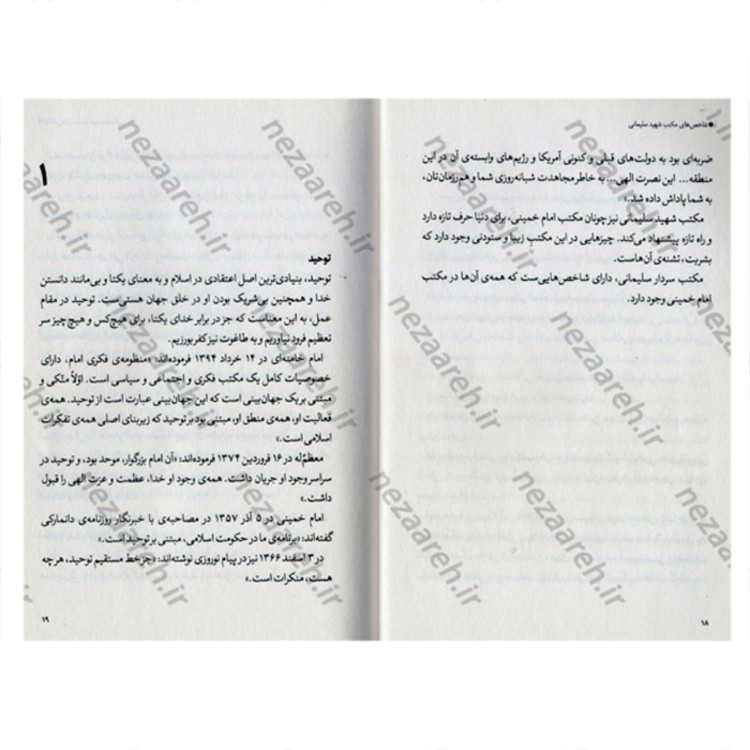 ● شاخص‌های مکتب شهید سلیمانی
ضربه‌ای بود به دولت‌های قبلی و کنونی آمریکا و رژیم‌های وابسته‌ی آن در این
منطقه... این نصرت الهی... به خاطر مجاهدت شبانه‌روزی شما و هم‌رزمان‌تان،
به شما پاداش داده شد.»
مکتب شهید سلیمانی نیز چونان مکتب امام خمینی، برای دنیا حرف تازه دارد
و راه تازه پیشنهاد می‌کند. چیزهایی در این مکتب زیبا و ستودنی وجود دارد که
بشریت، تشنه‌ی آن‌هاست.
مکتب سردار سلیمانی، دارای شاخص‌هایی‌ست که همه‌ی آن‌ها در مکتب
امام خمینی وجود دارد.
۱۸
۱
توحید
توحید، بنیادی‌ترین اصل اعتقادی در اسلام و به معنای یکتا و بی‌مانند دانستن
خدا و همچنین بی‌شریک بودن او در خلق جهان هستی‌ست. توحید در مقام
عمل، به این معناست که جز در برابر خدای یکتا، برای هیچ‌کس و هیچ‌چیز سر
تعظیم فرود نیاوریم و به طاغوت نیز کفر بورزیم.
امام خامنه‌ای در ۱۴ خرداد ۱۳۹۴ فرموده‌اند: «منظومه‌ی فکری امام، دارای
خصوصیات کامل یک مکتب فکری و اجتماعی و سیاسی است. اوّلاً متّکی و
مبتنی بر یک جهان‌بینی است که این جهان‌بینی عبارت است از توحید. همه‌ی
فعالیت او، همه‌ی منطق او، مبتنی بود بر توحید که زیربنای اصلی همه‌ی تفکرات
اسلامی است.»
معظم‌ٌله در ۱۶ فروردین ۱۳۷۴ فرموده‌اند: «آن امام بزرگوار، موحد بود، و توحید در
سراسر وجود او جریان داشت. همه‌ی وجود او خدا، عظمت و عزت الهی را قبول
داشت.»
امام خمینی در ۵ آذر ۱۳۵۷ در مصاحبه‌ی با خبرنگار روزنامه‌ی دانمارکی
گفته‌اند: «برنامه‌ی ما در حکومت اسلامی، مبتنی بر توحید است.»
در ۳ اسفند ۱۳۶۶ نیز در پیام نوروزی نوشته‌اند: «جز خط مستقیم توحید، هر چه
هست، منکرات است.»
۱۹
nezaareh.ir
nezaareh.ir
nezaareh.ir
nezaareh.ir
nezaareh.ir
nezaareh.ir
nezaareh.ir
nezaareh.ir
nezaareh.ir